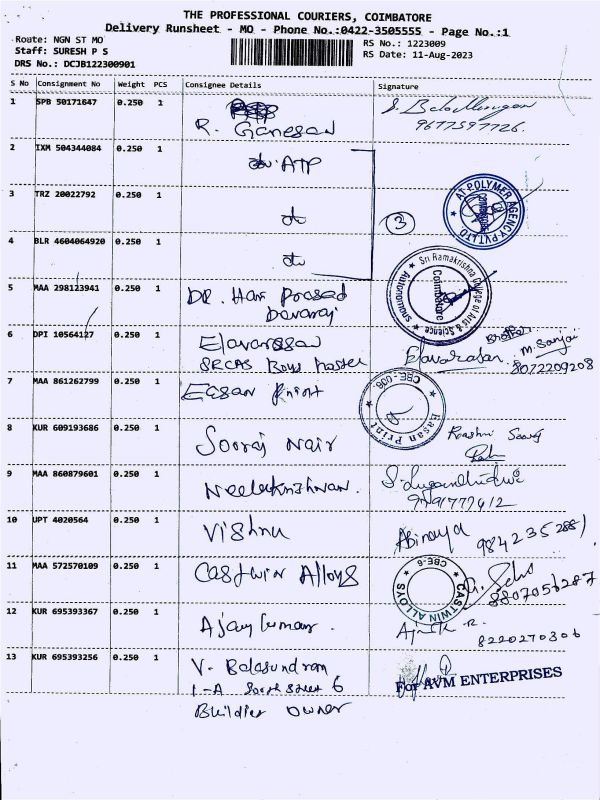 THE PROFESSIONAL COURIERS, COIMBATORE
Delivery Runsheet - MO - Phone No.:0422-3505555 - Page No.:1
Route: NGN ST MO
Staff: SURESH P S
DRS No.: DCJB122300901
RS No.: 1223009
RS Date: 11-Aug-2023
S No Consignment No Weight PCS Consignee Details Signature
1 SPB 50171647 0.250 1
R. Ganesan
9677597726.
2 IXM 504344084 0.250 1 ATP
3 TRZ 20022792 0.250 1
3
AT POLYMER AGENCY PVT LTD
4 BLR 4604064920 0.250 1
5 MAA 298123941 0.250 1 DR. Hari Prasad
Devaraj
Sri Ramakrishna College of Arts & Science
Autonomous
Coimbatore
6 DPI 10564127 0.250 1 Elavarasan
SRCAS Boys Hostel
Elavarasan
M. Sanjai
8072209208
7 MAA 861262799 0.250 1 Easan Print
Easan Print
CBE-006.
8 KUR 609193686 0.250 1 Sooraj Nair
9 MAA 860879601 0.250 1 Neelakrishnan.
10 UPT 4020564 0.250 1 Vishnu
Abinaya 9842352881
11 MAA 572570109 0.250 1 Castwin Alloys
CASTWIN ALLOYS
CBE-6
8807056287
12 KUR 695393367 0.250 1 Ajay Kumar.
8220270306
13 KUR 695393256 0.250 1 V. Balasundram
1-A South Street 6
Buildier owner
For AVM ENTERPRISES